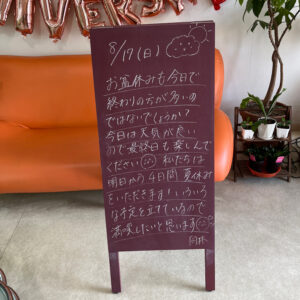 8/17(日)
お盆休みも今日で
終わりの方が多いの
ではないでしょうか?
今日は天気が良い
ので最終日も楽しんで
ください 私たちは
明日から4日間 夏休み
をいただきます! いろいろ
な予定を立てているので
満喫したいと思います